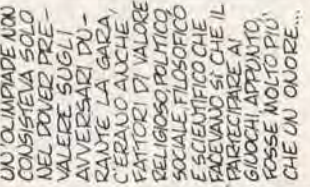 UN'OLIMPIADE NON
CONSISTEVA SOLO
NEL DOVER PRE-
VALERE SUGLI
AVVERSARI DU-
RANTE LA GARA,
C'ERANO ANCHE
FATTORI DI VALORE
RELIGIOSO, POLITICO,
SOCIALE, FILOSOFICO
E SCIENTIFICO CHE
FACEVANO SÌ CHE IL
PARTECIPARE AI
GIUOCHI, APPUNTO,
FOSSE MOLTO PIÙ
CHE UN ONORE...